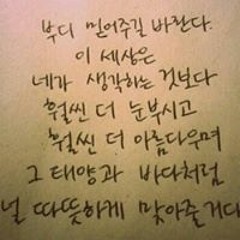 부디 믿어주길 바란다.
이 세상은
네가 생각하는 것보다
훨씬 더 눈부시고
훨씬 더 아름다우며
그 태양과 바다처럼
널 따뜻하게 맞아줄거다